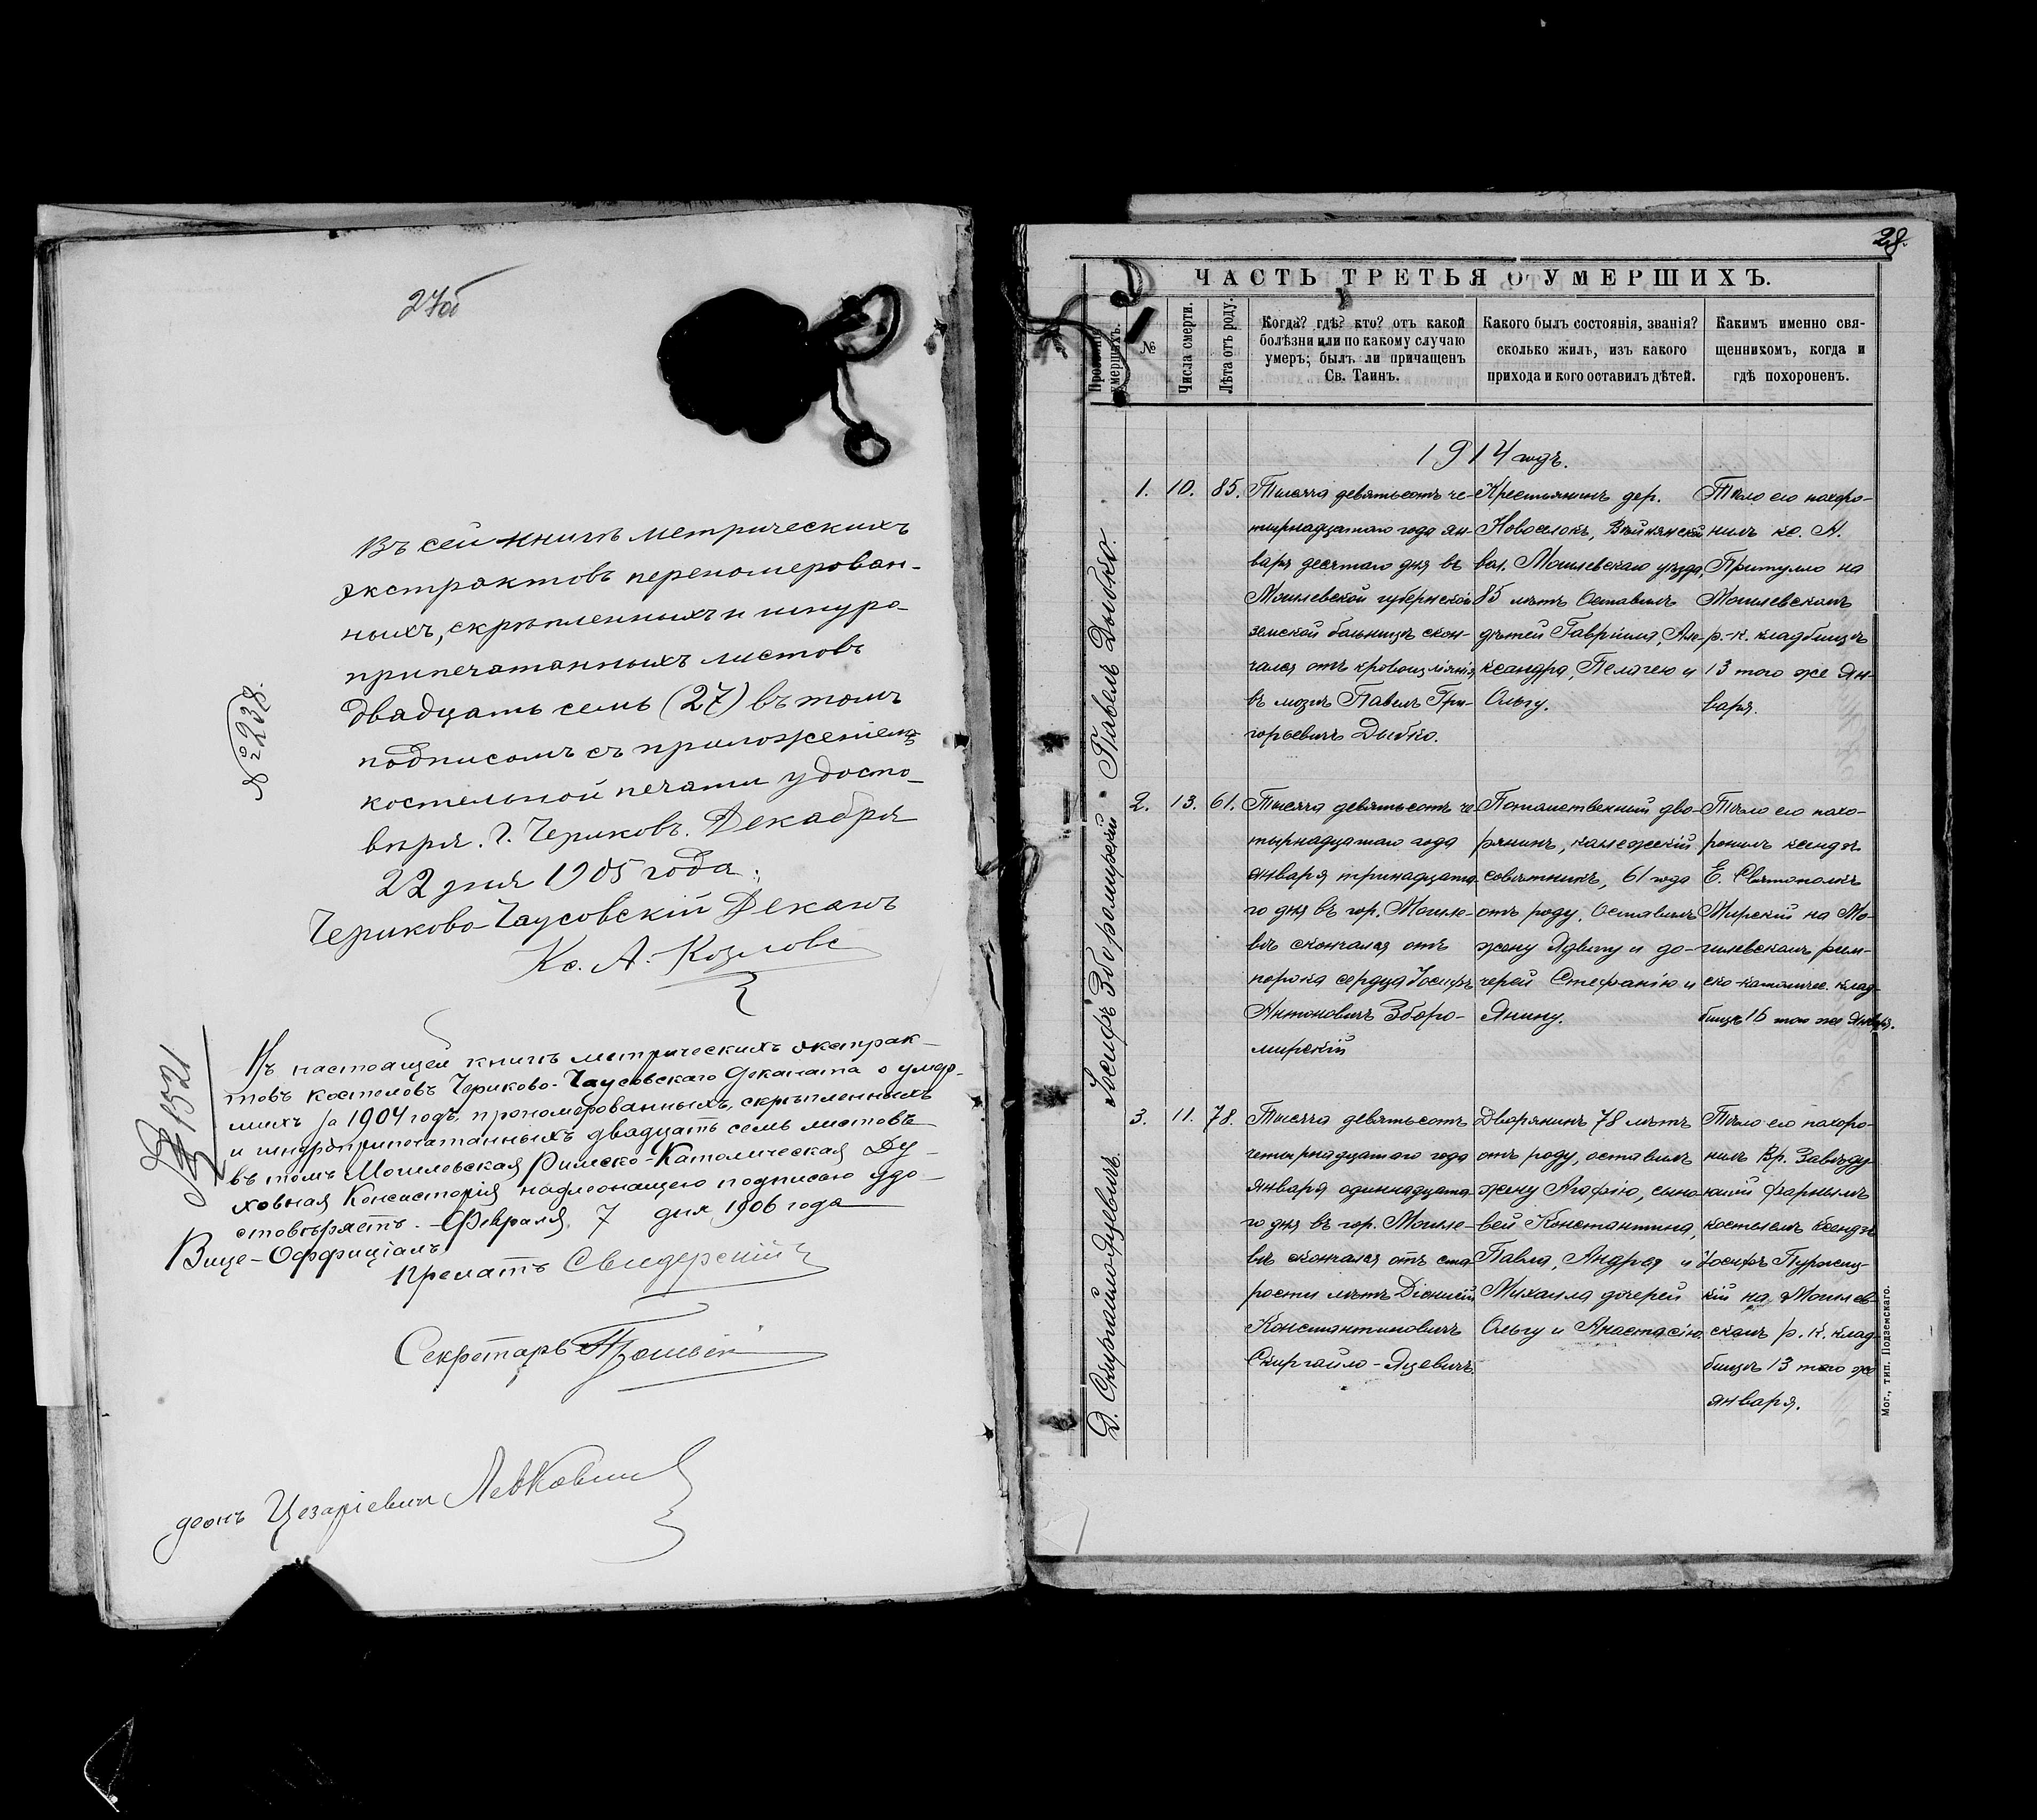 27об
Въ сей книгѣ метрическихъ
экстрактовъ переномерован-
ныхъ, скрѣпленныхъ и шнуро-
припечатанныхъ листовъ
двадцать семь (27) въ томъ
подписомъ съ приложеніемъ
костельной печати удосто-
вѣряю. Г. Чериковъ. Декабря
22 дня 1905 года.
Чериково-Чаусовскій Деканъ
Кс. А. Козловс
№ 238.
№ 1521
Въ настоящей книгѣ метрическихъ экстрак-
товъ костеловъ Чериково-Чаусовскаго Деканата о умер-
шихъ за 1904 годъ, прономерованныхъ, скрѣпленныхъ
и шнуроприпечатанныхъ двадцать семь листовъ
въ томъ Могилевская Римско-Католическая Ду-
ховная Консисторія надлежащею подписью удо-
стовѣряетъ. Февраля 7 дня 1906 года
Вице-Оффиціалъ
Прелатъ Свидерскій
Секретарь
Цезаріевич Левкович
28.
ЧАСТЬ ТРЕТЬЯ О УМЕРШИХЪ.
умершихъ.
№
Числа смерти.
Лѣта отъ роду.
Когда? гдѣ? кто? отъ какой
болѣзни или по какому случаю
умеръ; былъ ли причащенъ
Св. Таинъ.
Какого былъ состоянія, званія?
сколько жилъ, изъ какого
прихода и кого оставилъ дѣтей.
Каким­ъ именно свя-
щенникомъ, когда и
гдѣ похороненъ.
1914 годъ.
Павелъ Дыбко.
1. 10. 85.
Тысяча девятьсотъ че-
тырнадцатаго года ян-
варя десятаго дня въ
Могилевской губернской
земской больницѣ скон-
чался отъ кровоизліянія
въ мозгъ Павелъ Гри-
горьевичъ Дыбко.
Крестьянинъ дер.
Новоселокъ, Вейнянской
вол. Могилевскаго уѣзда,
85 лѣтъ Оставилъ
дѣтей Гавріила, Але-
ксандра, Пелагею и
Ольгу.
Тѣло его похоро-
нилъ кс. А.
Притулло на
Могилевскомъ
р.-к. кладбищѣ
13 того же Ян-
варя.
Іосифъ Збромирскій
2. 13. 61.
Тысяча девятьсотъ че-
тырнадцатаго года
января тринадцата-
го дня въ гор. Могиле-
вѣ скончался отъ
порока сердца Іосифъ
Антоновичъ Зборо-
мирскій
Потомственный дво-
рянинъ, колежскій
совѣтникъ, 61 года
отъ роду. Оставилъ
жену Ядвигу и до-
черей Стефанію и
Янину.
Тѣло его похо-
ронилъ ксендзъ
Е. Святополкъ
Мирскій на Мо-
гилевскомъ рим-
ско-католичес. клад-
бищѣ 16 того же Января.
Д. Скиргайло-Яцевичъ.
3. 11. 78.
Тысяча девятьсотъ
четырнадцатаго года
января одиннадцата-
го дня въ гор. Могиле-
вѣ скончался отъ ста-
рости лѣтъ Діонисій
Константиновичъ
Скиргайло-Яцевичъ.
Дворянинъ 78 лѣтъ
отъ роду, оставилъ
жену Агафію, сыно-
вей Константина,
Павла, Андрея и
Михаила дочерей
Ольгу и Анастасію.
Тѣло его похоро-
нилъ Вр. Завѣду-
ющій фарнымъ
костеломъ ксендзъ
Іосифъ Пурониц-
кій на Могилев-
скомъ р. к. клад-
бищѣ 13 того же
января.
Мог., тип. Подземскаго.